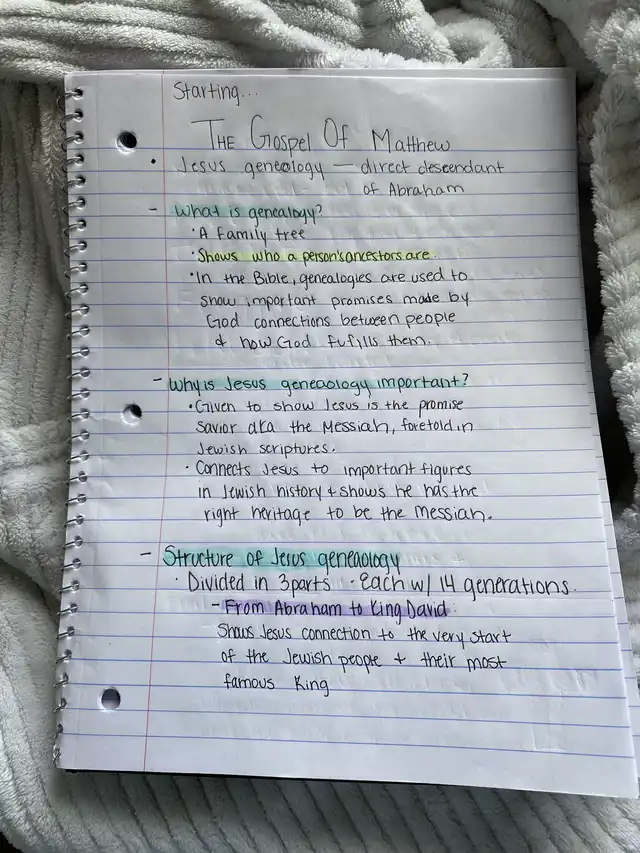 Starting...
The Gospel Of Matthew
• Jesus geneology — direct descendant
of Abraham
- What is genealogy?
• A family tree
• Shows who a person's ancestors are.
• In the Bible, genealogies are used to
show important promises made by
God connections between people
& how God fufills them.
- Why is Jesus geneaology important?
• Given to show Jesus is the promise
Savior aka the Messiah, foretold in
Jewish scriptures.
• Connects Jesus to important figures
in Jewish history + shows he has the
right heritage to be the Messiah.
- Structure of Jesus geneaology
• Divided in 3 parts • Each w/ 14 generations.
- From Abraham to King David:
Shows Jesus connection to the very start
of the Jewish people + their most
famous King